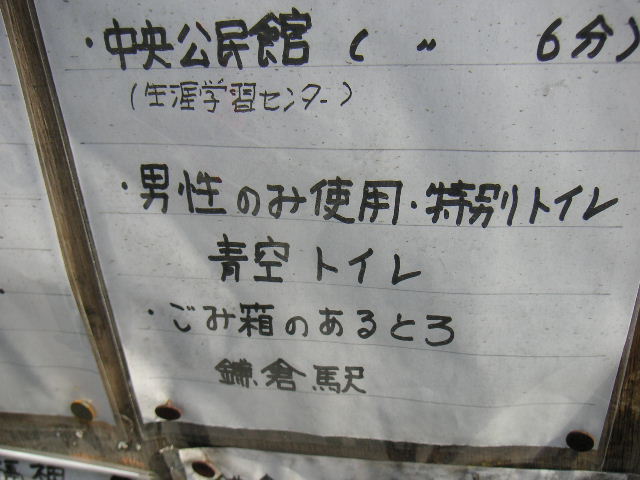 ・中央公民館 ( 〃 6分)
(生涯学習センター)
・男性のみ使用・特別トイレ
青空トイレ
・ごみ箱のあるところ
鎌倉駅